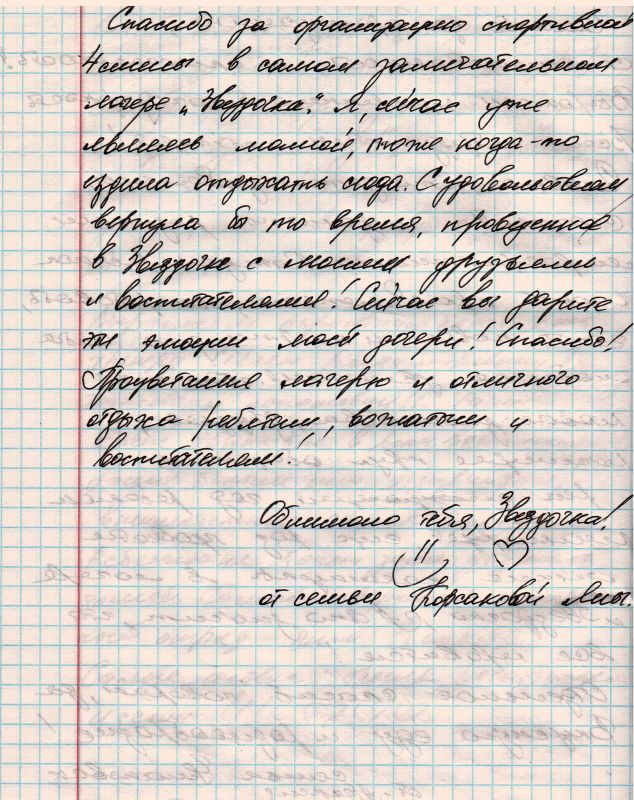 Спасибо за организацию спортивной
4 смены в самом замечательном
лагере „Звездочка". Я, сейчас уже
являясь мамой, тоже когда-то
ездила отдыхать сюда. С удовольствием
вернула бы то время, проведенное
в Звездочке с моими друзьями
и воспитателями! Сейчас вы дарите
эти эмоции моей дочери! Спасибо!
Процветания лагерю и отличного
отдыха ребятам, вожатым и
воспитателям!
Обнимаю тебя, Звездочка!
от семьи Корсаковой Яны.